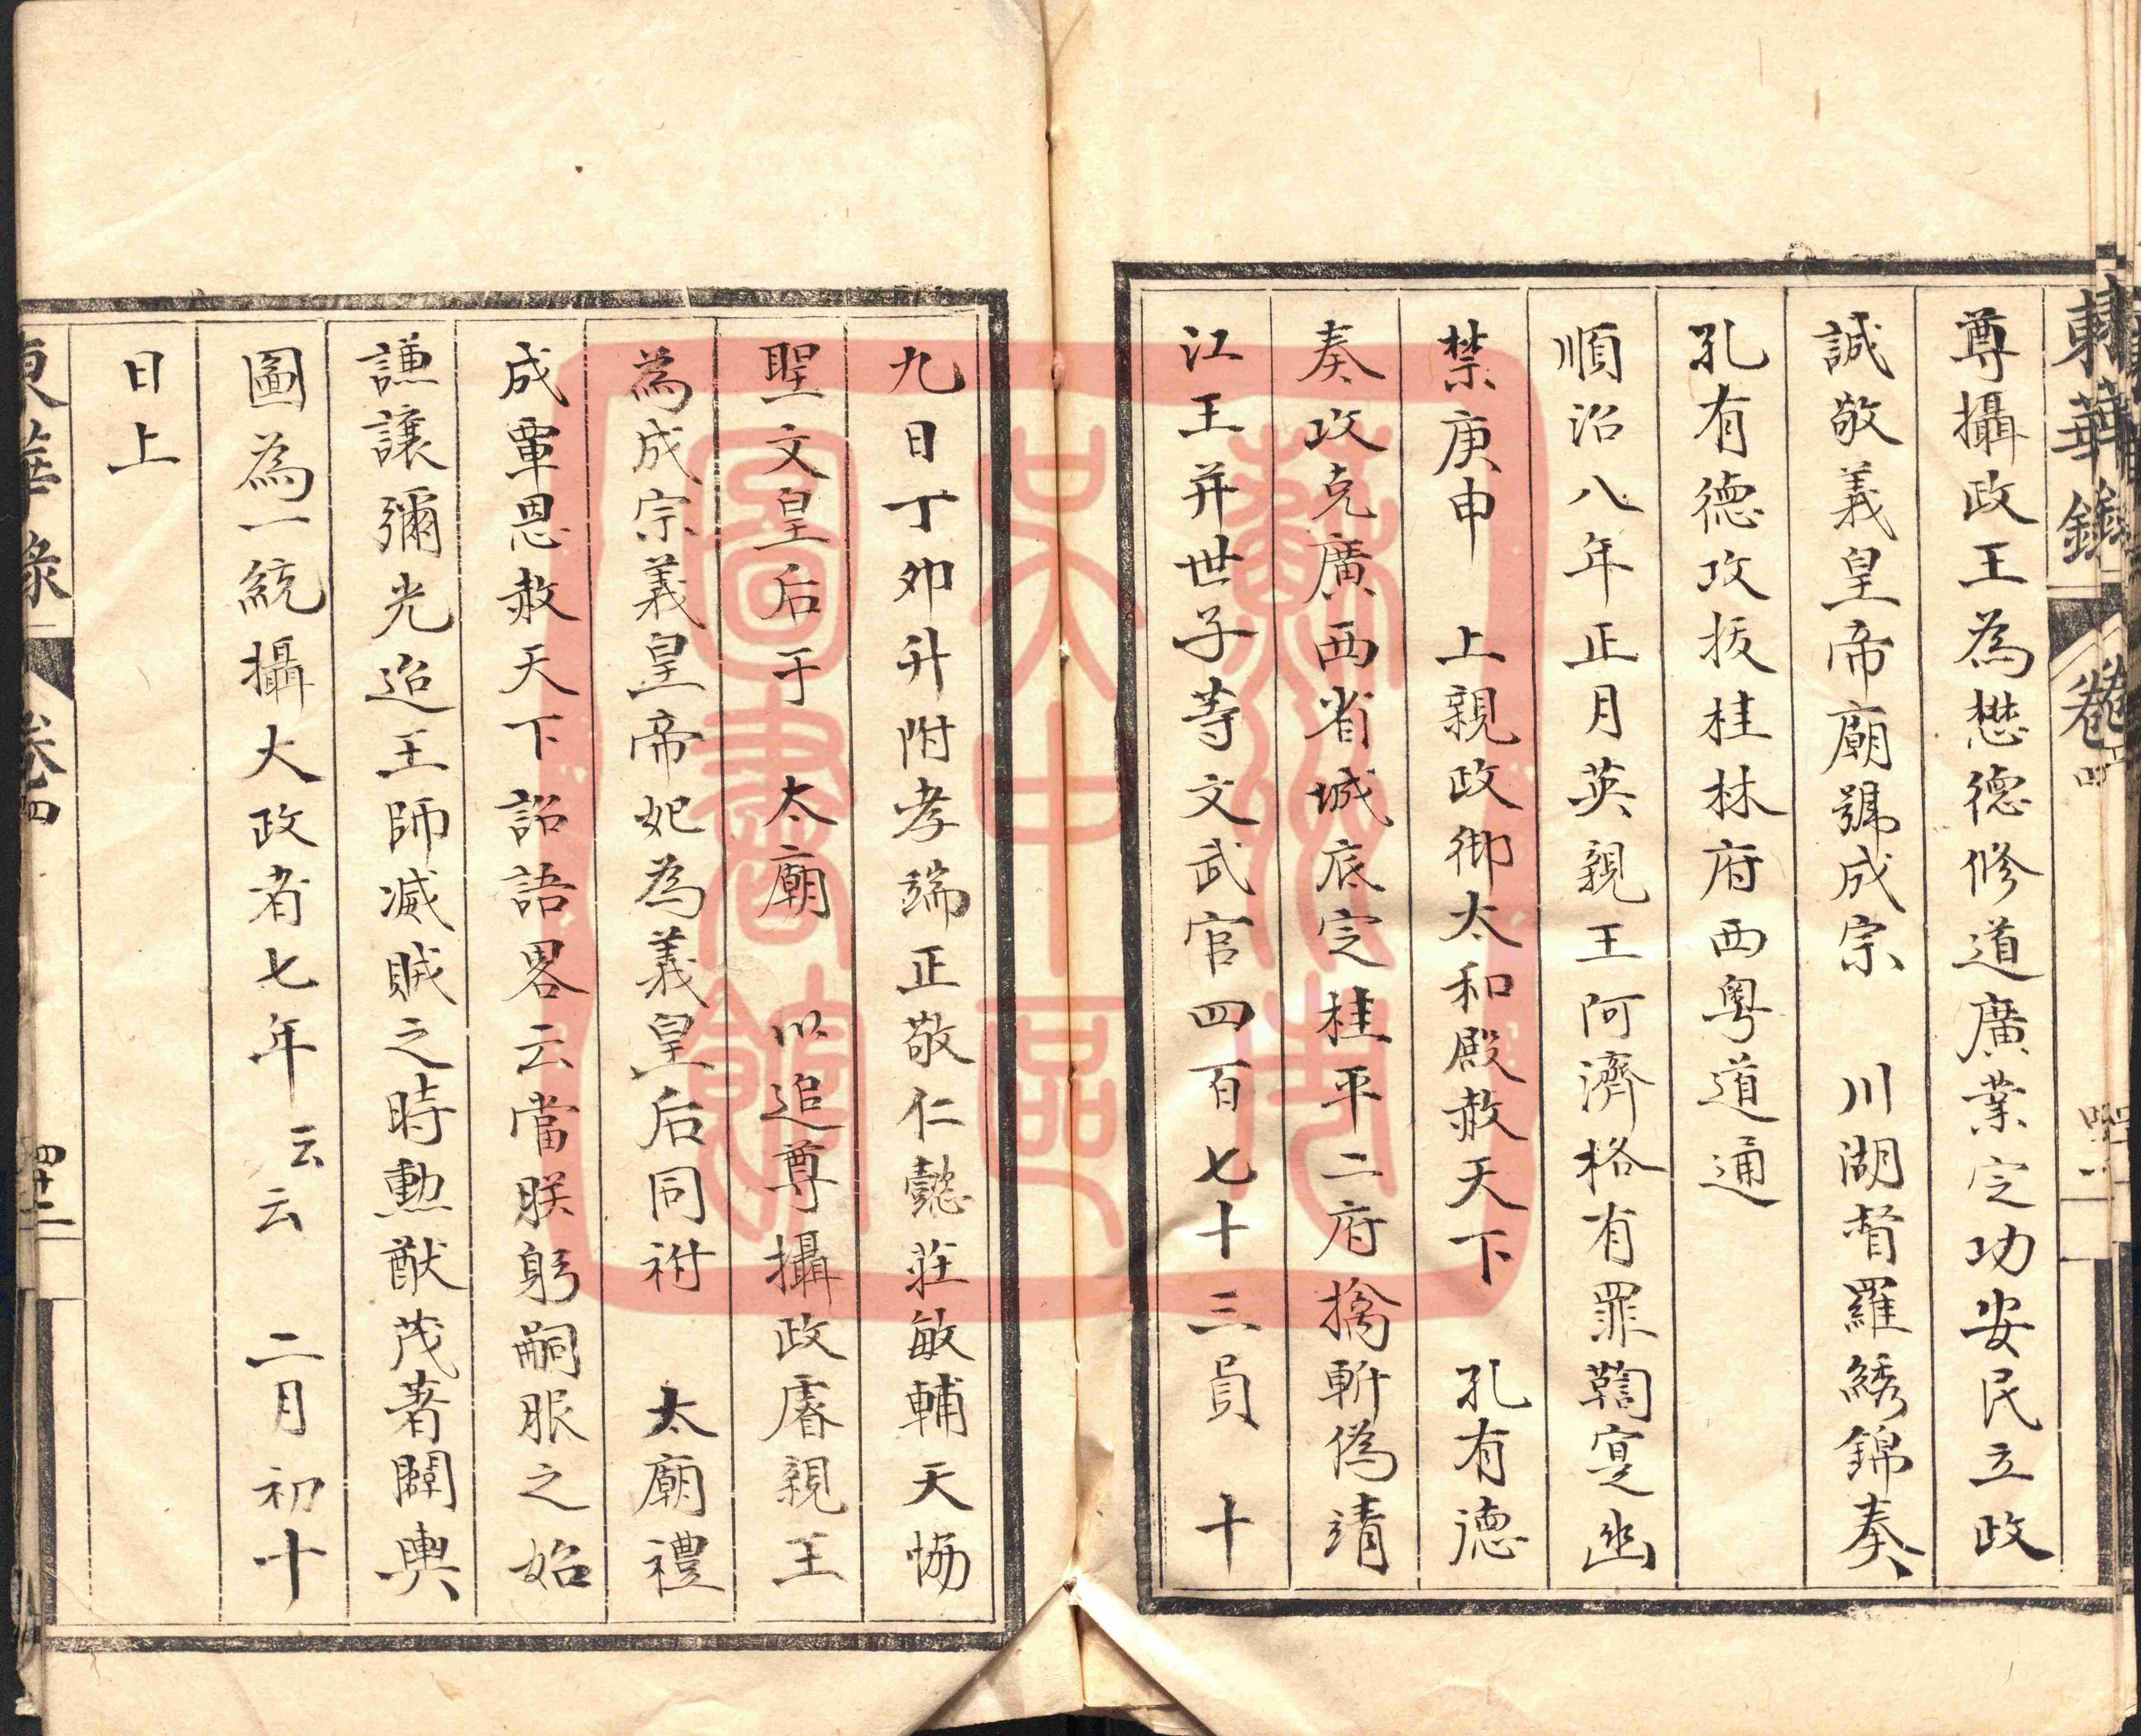 東華錄 卷四
尊攝政王為懋德修道廣業定功安民立政
誠敬義皇帝廟號成宗 川湖督羅綉錦奏
孔有德攻拔桂林府西粵道通
順治八年正月英親王阿濟格有罪鞫寔幽
禁庚申 上親政御太和殿赦天下 孔有德
奏攻克廣西省城底定桂平二府擒斬偽靖
江王并世子等文武官四百七十三員 十
九日丁卯升附孝端正敬仁懿莊敏輔天協
聖文皇后于 太廟 以追尊攝政睿親王
為成宗義皇帝妃為義皇后同祔 太廟禮
成覃恩赦天下詔語畧云當朕躬嗣服之始
謙讓彌光迨王師滅賊之時勳猷茂著闢輿
圖為一統攝大政者七年云云 二月初十
日上
東華錄 卷四 四十二
蘇州市
吳中區
圖書館